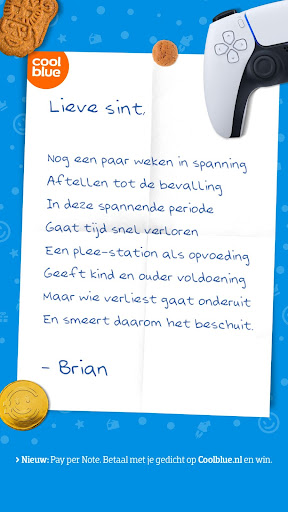 cool
blue
Lieve sint,
Nog een paar weken in spanning
Aftellen tot de bevalling
In deze spannende periode
Gaat tijd snel verloren
Een plee-station als opvoeding
Geeft kind en ouder voldoening
Maar wie verliest gaat onderuit
En smeert daarom het beschuit.
- Brian
> Nieuw: Pay per Note. Betaal met je gedicht op Coolblue.nl en win.